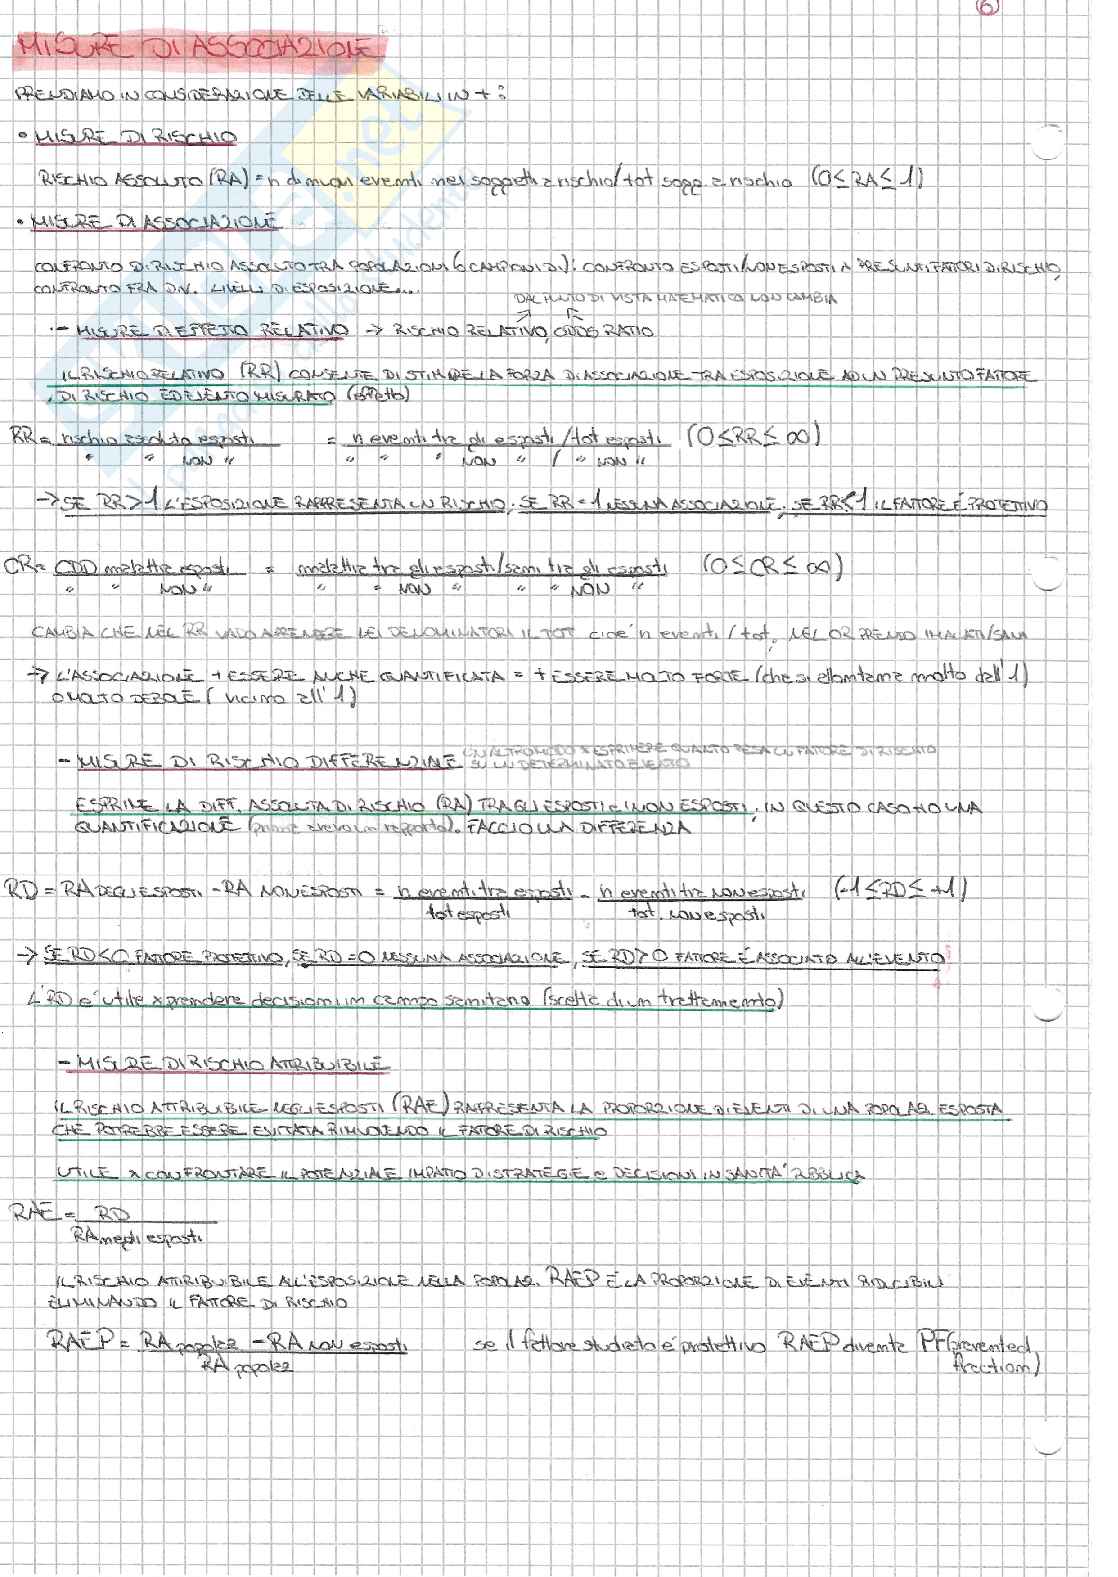 6
MISURE DI ASSOCIAZIONE
PRENDIAMO IN CONSIDERAZIONE DELLE VARIABILI IN + :
• MISURE DI RISCHIO
RISCHIO ASSOLUTO (RA) = n di nuovi eventi nei soggetti a rischio/tot sogg. a rischio (0≤RA≤1)
• MISURE DI ASSOCIAZIONE
CONFRONTO DI RISCHIO ASSOLUTO TRA POPOLAZIONI (o CAMPIONI DI): CONFRONTO ESPOSTI/NON ESPOSTI A PRESUNTI FATTORI DI RISCHIO,
CONFRONTO FRA DIV. LIVELLI DI ESPOSIZIONE...
DAL PUNTO DI VISTA MATEMATICO NON CAMBIA
- MISURE DI EFFETTO RELATIVO → RISCHIO RELATIVO, ODDS RATIO
IL RISCHIO RELATIVO (RR) CONSENTE DI STIMARE LA FORZA DI ASSOCIAZIONE TRA ESPOSIZIONE AD UN PRESUNTO FATTORE
DI RISCHIO ED EVENTO MISURATO (effetto)
RR = rischio assoluto esposti = n eventi tra gli esposti/tot esposti (0≤RR≤∞)
" " NON " " " " NON " / " NON "
→ SE RR>1 L'ESPOSIZIONE RAPPRESENTA UN RISCHIO, SE RR=1 NESSUNA ASSOCIAZIONE, SE RR<1 IL FATTORE É PROTETTIVO
OR = ODD malattia esposti = malattia tra gli esposti/sani tra gli esposti (0≤OR≤∞)
" " NON " " " NON " " " NON "
CAMBIA CHE NEL RR VADO A PRENDERE NEI DENOMINATORI IL TOT cioè n eventi/tot, NEL OR PRENDO I MALATI/SANI
→ L'ASSOCIAZIONE + ESSERE ANCHE QUANTIFICATA = + ESSERE MOLTO FORTE (che si allontana molto dall'1)
O MOLTO DEBOLE (vicino all'1)
- MISURE DI RISCHIO DIFFERENZIALE UN ALTRO MODO X ESPRIMERE QUANTO PESA UN FATTORE DI RISCHIO
SU UN DETERMINATO EVENTO
ESPRIME LA DIFF. ASSOLUTA DI RISCHIO (RA) TRA GLI ESPOSTI E I NON ESPOSTI, IN QUESTO CASO HO UNA
QUANTIFICAZIONE (prima avevo un rapporto). FACCIO UNA DIFFERENZA
RD = RA DEGLI ESPOSTI - RA NON ESPOSTI = n eventi tra esposti - n eventi tra non esposti (-1≤RD≤+1)
tot esposti tot. non esposti
→ SE RD<0 FATTORE PROTETTIVO, SE RD=0 NESSUNA ASSOCIAZIONE, SE RD>0 FATTORE É ASSOCIATO ALL'EVENTO
L'RD e' utile x prendere decisioni in campo sanitario (scelta di un trattamento)
- MISURE DI RISCHIO ATTRIBUIBILE
IL RISCHIO ATTRIBUIBILE NEGLI ESPOSTI (RAE) RAPPRESENTA LA PROPORZIONE DI EVENTI DI UNA POPOLAZ. ESPOSTA
CHE POTREBBE ESSERE EVITATA RIMUOVENDO IL FATTORE DI RISCHIO
UTILE X CONFRONTARE IL POTENZIALE IMPATTO DI STRATEGIE e DECISIONI IN SANITA' PUBBLICA
RAE = RD
RA negli esposti
IL RISCHIO ATTRIBUIBILE ALL'ESPOSIZIONE NELLA POPOLAZ. RAEP É LA PROPORZIONE DI EVENTI RIDUCIBILI
ELIMINANDO IL FATTORE DI RISCHIO
RAEP = RA popolaz - RA non esposti se il fattore studiato é protettivo RAEP diventa PF (prevented
RA popolaz fraction)